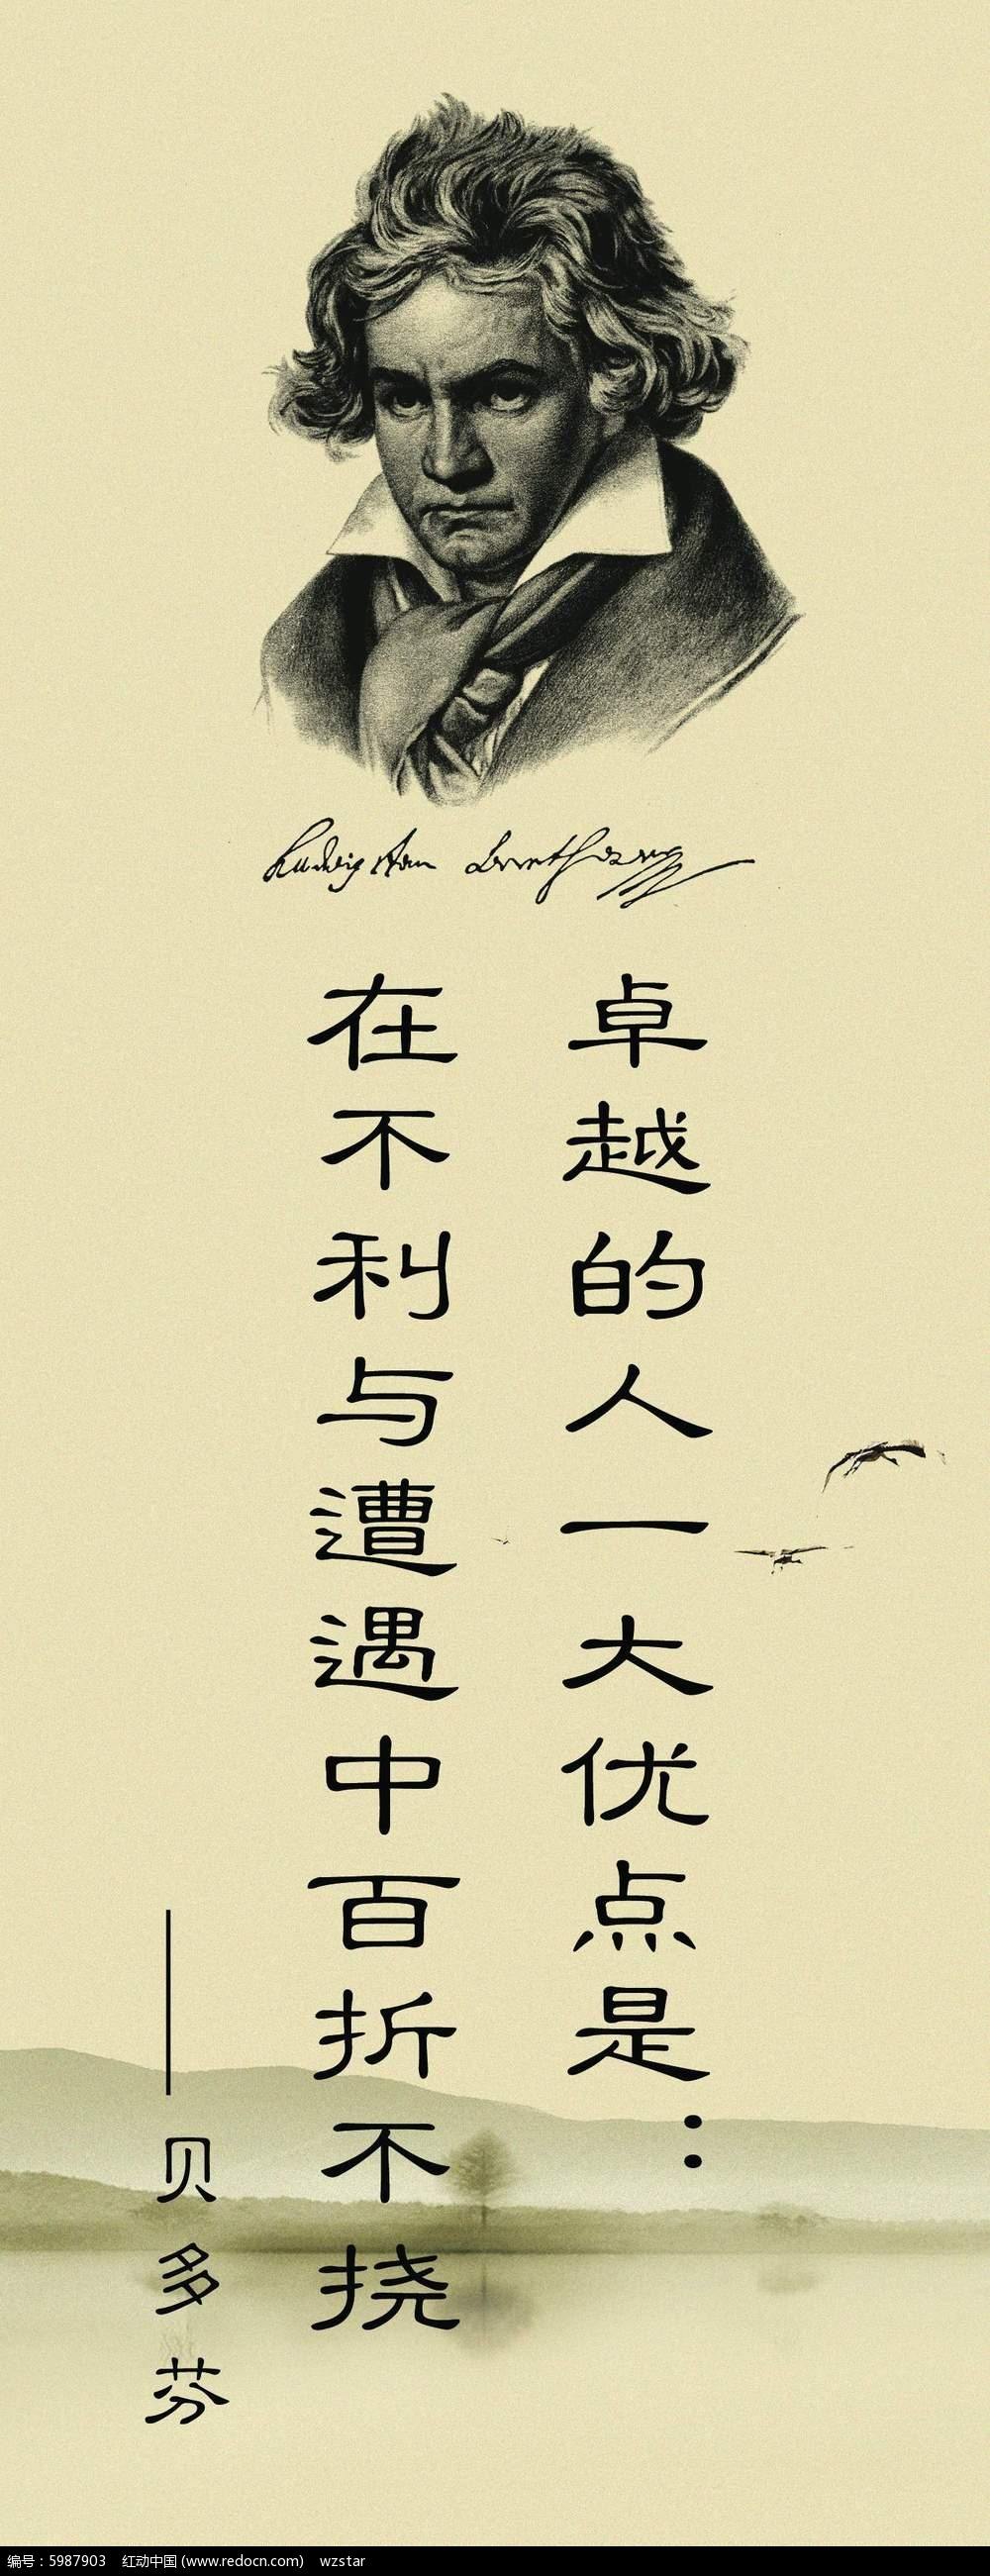 Ludwig van Beethoven
卓越的人一大优点是：
在不利与遭遇中百折不挠
——贝多芬
编号：5987903 红动中国 (www.redocn.com) wzstar